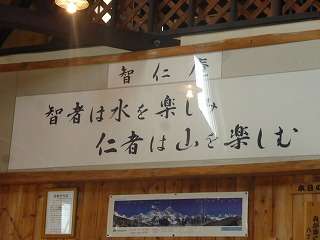 智仁庵
智者は水を楽しみ
仁者は山を楽しむ
本日の